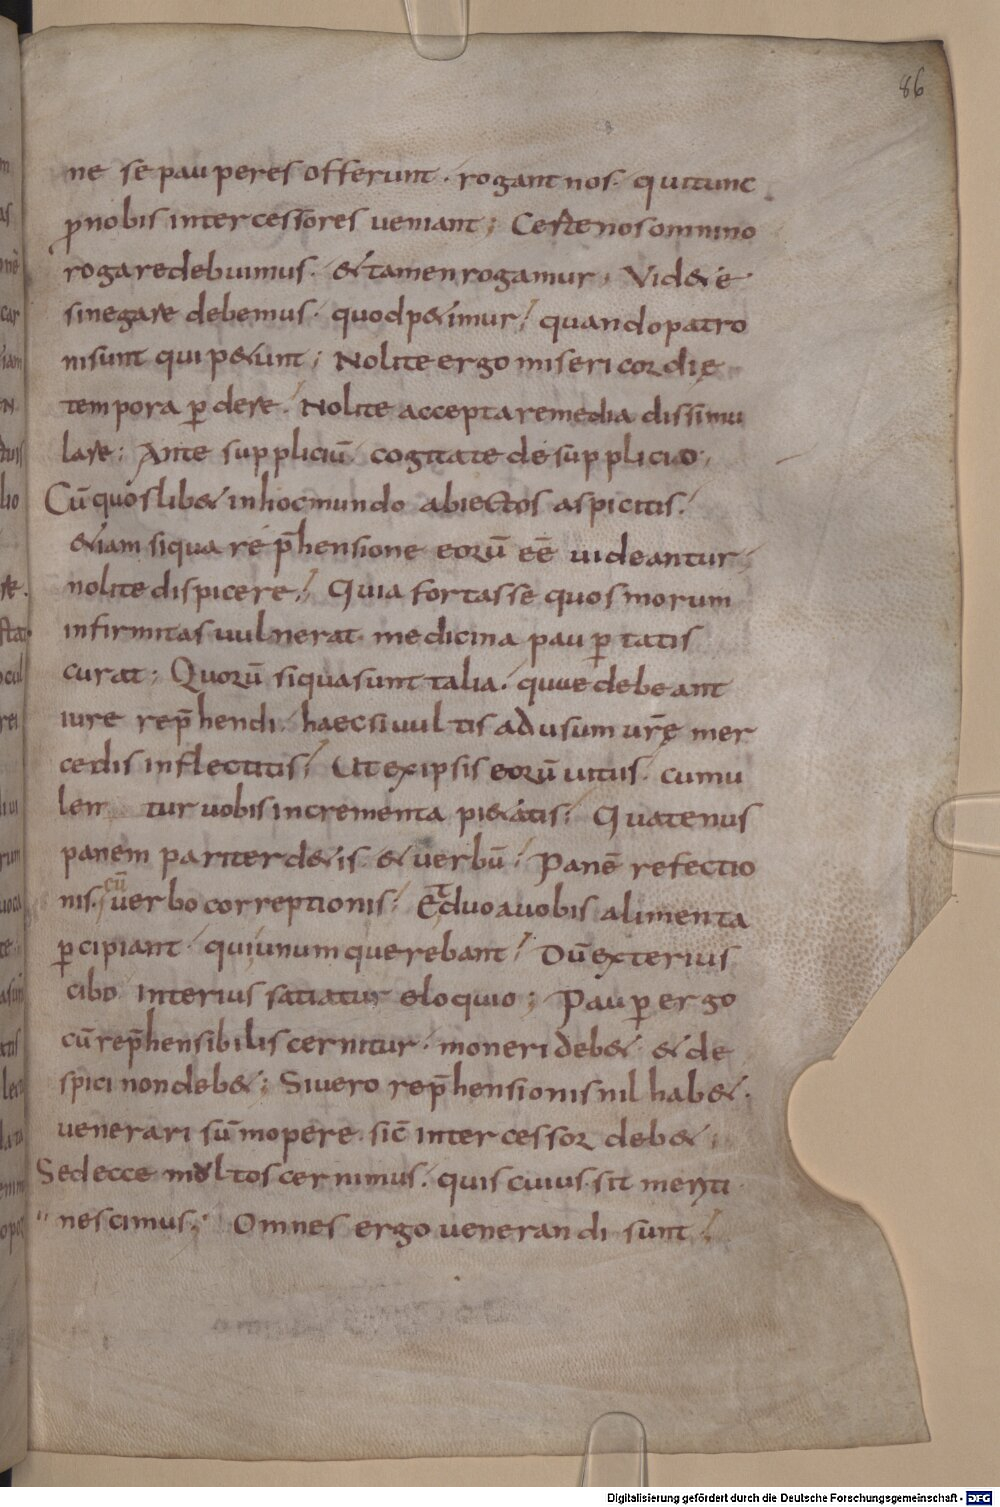 86
ne se pauperes offerunt· rogant nos· qui tunc
p̱nobis intercessores veniant; Certe nos omnino
rogare debuimus· & tamen rogamur· Vid&e
si negare debemus· quod p&imur; quando patro
ni sunt qui p&unt; Nolite ergo misericordię
tempora p̱dere· Nolite accepta remedia dissimu
lare; Ante suppliciū cogitate de supplicio;
Cū quoslib& in hoc mundo abiectos aspicitis·
&iam si qua rep̄hensione eorū eē uideantur
nolite dispicere; Quia fortasse quos morum
infirmitas uulnerat medicina paup̱tatis
curat; Quorū siqua sunt talia· quue debeant
iure rep̄hendi· haec si uultis ad usum ur̄ę mer
cedis inflectitis; Ut ex ipsis eorū uitiis· cumu
len tur uobis incrementa pi&atis; Quatenus
panem pariter d&is & uerbū; Panē refectio
nis· cū uerbo correptionis; Et duo a uobis alimenta
p̱cipiant qui unum querebant; Dū exterius
cibo interius satiatur eloquio; Paup̱ ergo
cū rep̄hensibilis cernitur· moneri deb& & de
spici non deb&; Si uero rep̄hensionis nil hab&·
uenerari sūmopere sic̄ intercessor deb&;
Sed ecce moltos cernimus· quis cuius sit meriti
nescimus; Omnes ergo uenerandi sunt;
Digitalisierung gefördert durch die Deutsche Forschungsgemeinschaft - DFG